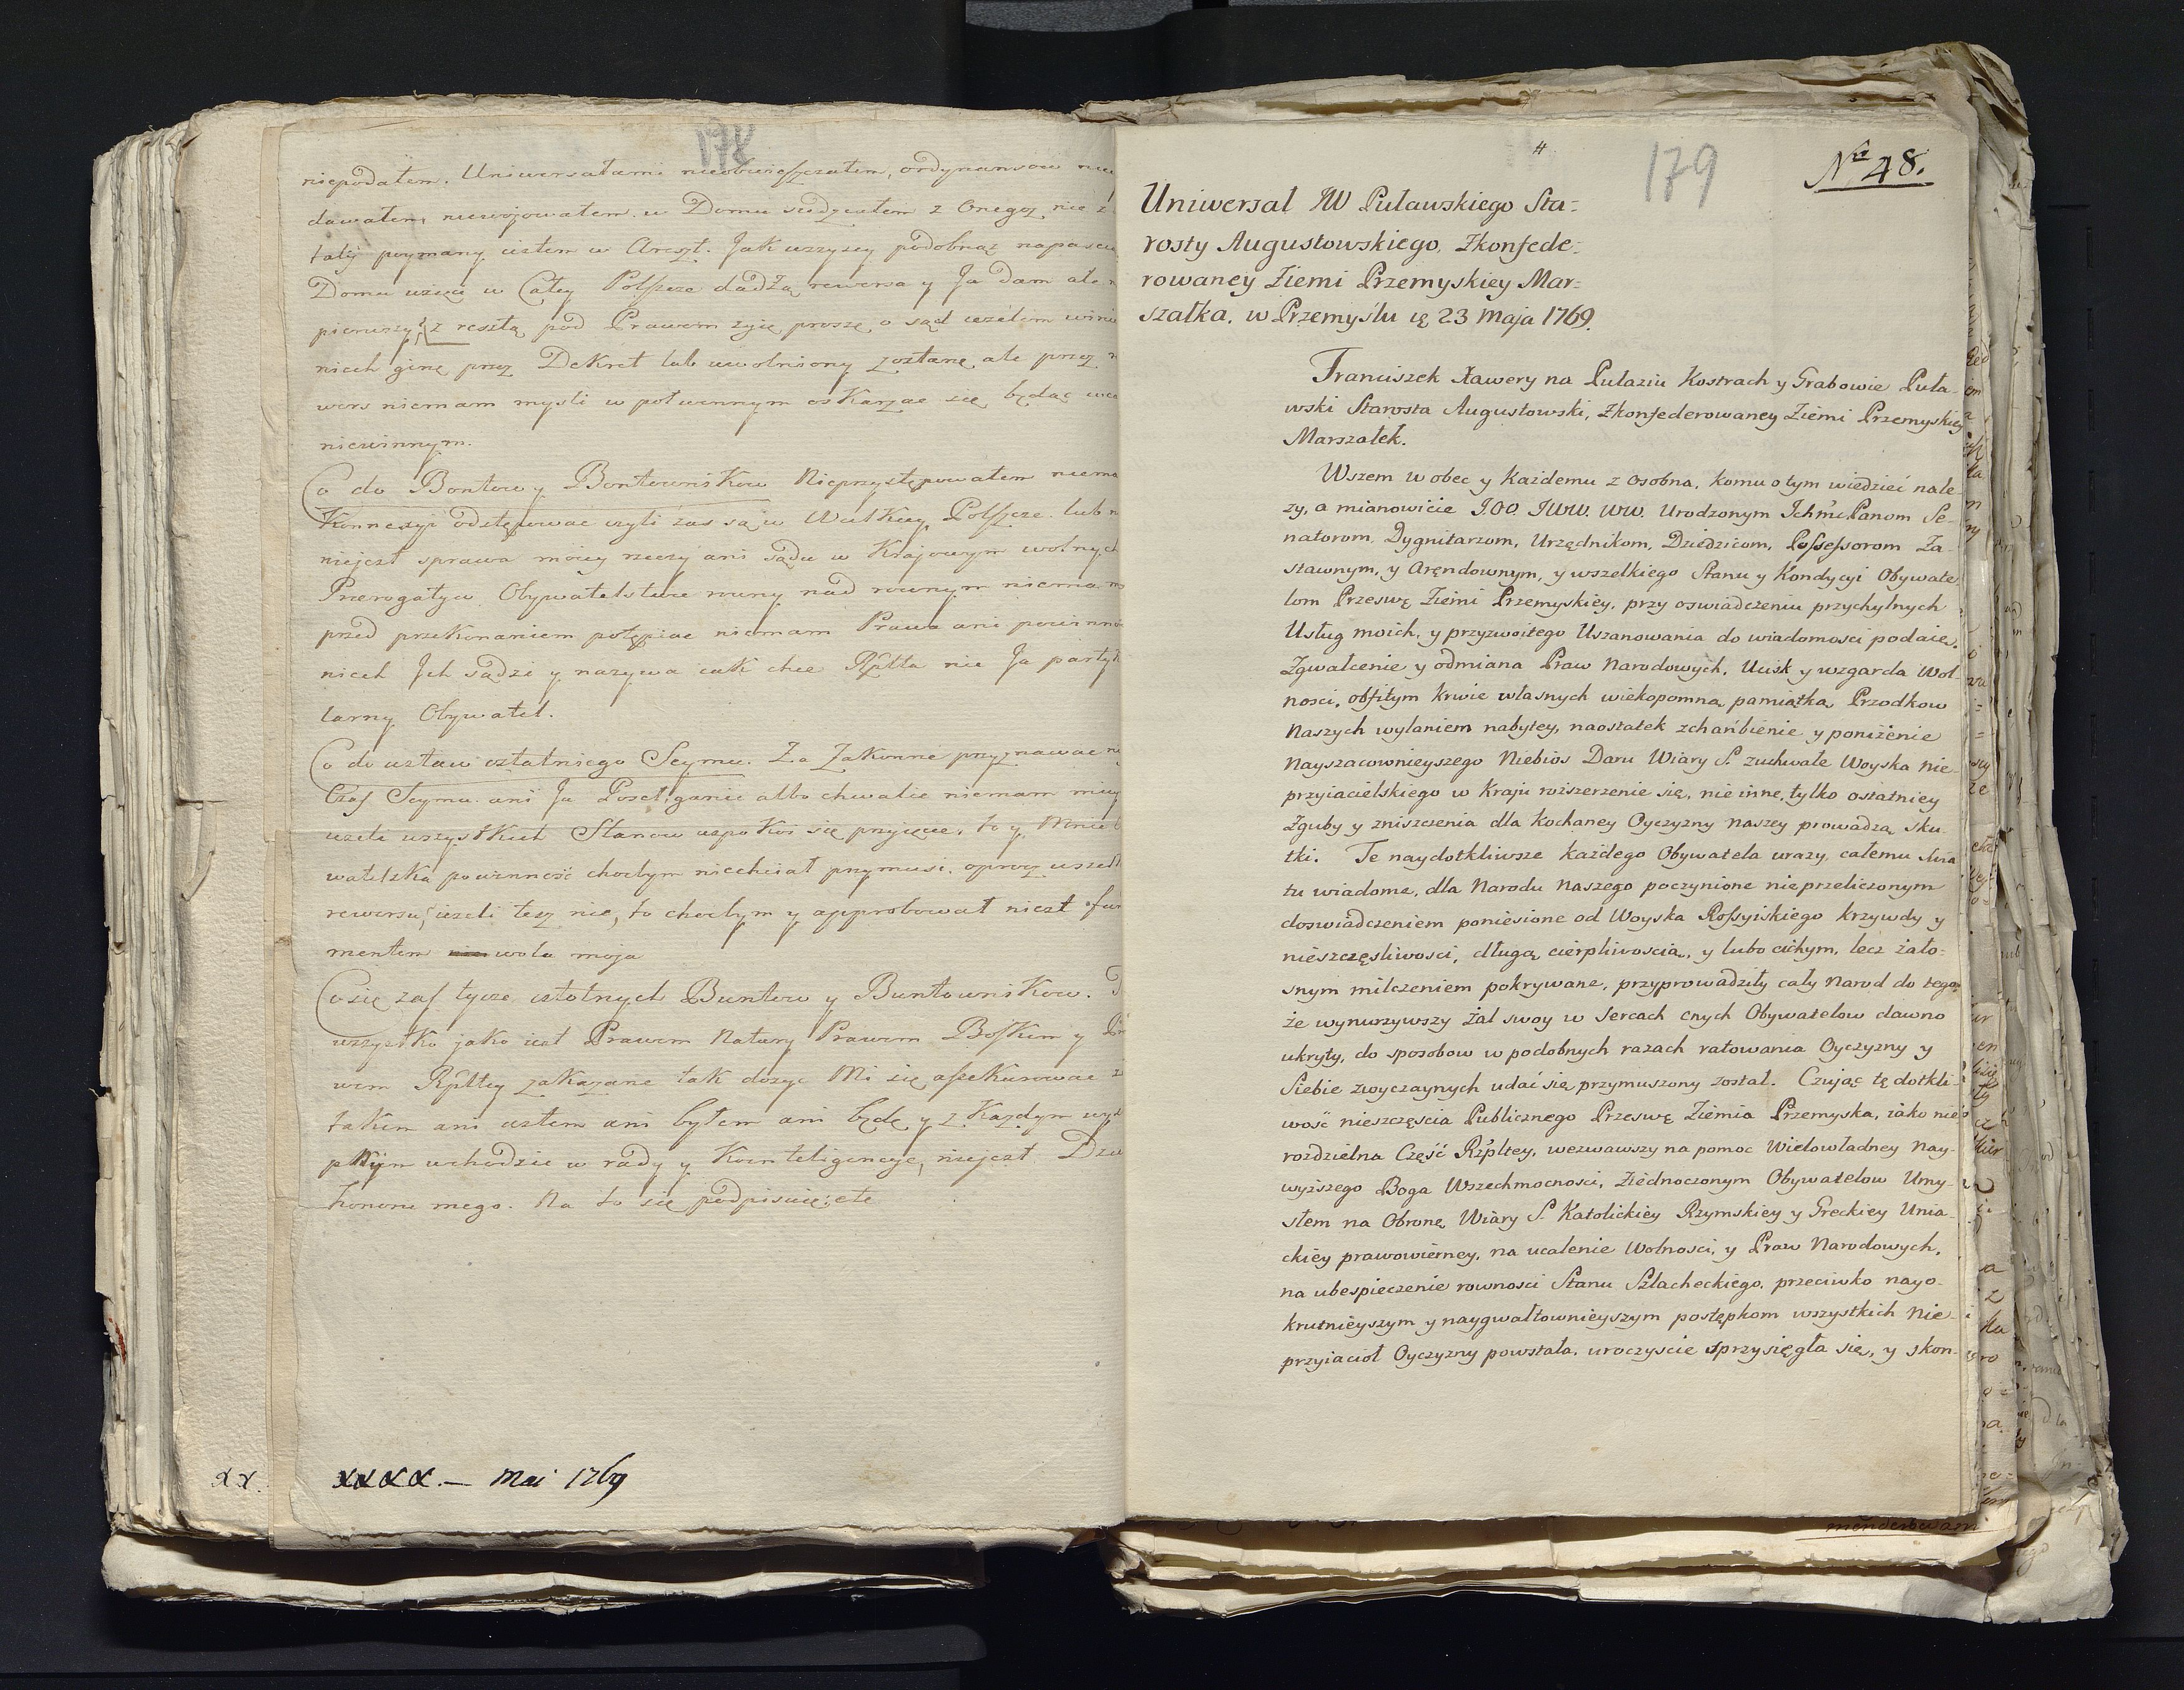 178
niepodałem. Uniwersałami nieobwieszczałem, ordynansow
dawałem, niewojowałem. w Domu siedziałem z Onegoz nie
taly poymany iestem w Areszt. Jak wszyscy podobnąz napascią
Domu wzięci w Całey Polszcze dadzą rewersa y Ja dam ale
pierwszy z resztą pod Prawem żyię proszę o sąd ieżelim
niech ginę przez Dekret lub uwolniony zostanę ale przez
wers niemam mysli w pół winnym oskarzac się będąc
niewinnym.
Co do Bontow y Bontownikow Nieprzystępowałem
Konnexyi odstępować czyli zas są w Wielkiey Polszcze. lub
niejest sprawa moiey rzeczy ani sądu w Krajowym wolnych
Prerogatyw Obywatelstwie rowny nad rownym niemam
przed przekonaniem potępiac niemam Prawa ani
niech Ich sądzi y nazywa iak chce Rptta nie Ja
larny Obywatel.
Co do ustaw ostatniego Seymu. Za Zakonne przyznawac
Czas Seymu. ani Ja Postiganie albo chwalic niemam
ieżeli wszystkich Stanow uspokoi się przyięcie, to y Mnie
watelska powinność chocbym niechciał przymusi. oprocz
rewersu, ieżeli tesz nie, to chocbym y approbował niest
mentem wola moja
Co się zas tycze istotnych Buntow y Buntownikow.
wszystko jako iest Prawem Natury Prawem Boskim y
wem Rptey zakazane tak dosyc Mi się assekurowac
takim ani iestem ani byłem ani będę y z Kazdym
wchodzic w rady y Kointeligencye, niejest
honoru mego. Na to się podpisuię, etc
XX.
XXXX. — Mai 1769
#
179
Nro 48.
Uniwersal JW Pulawskiego Sta=
rosty Augustowskiego, Zkonfede=
rowaney Ziemi Przemyskiey Mar=
szałka. w Przemyslu ię 23 Maja 1769.
Franciszek Xawery na Pulaziu Kostrach y Grabowie Puła-
wski Starosta Augustowski, Zkonfederowaney Ziemi Przemyskiey
Marszałek.
Wszem wobec y każdemu z osobna, komu o tym wiedzieć nale
zy, a mianowicie J.OO. JWW. WW. Urodzonym Ichmć Panom Se-
natorom, Dygnitarzom, Urzędnikom, Dziedzicom, Possessorom Za-
stawnym, y Arędownym, y wszelkiego Stanu y Kondycyi Obywate
lom Przeswę Ziemi Przemyskiey, przy oswiadczeniu przychylnych
Usług moich, y przyzwoitego Uszanowania do wiadomosci podaię.
Zgwałcenie y odmiana Praw Narodowych, Ucisk y wzgarda Wol-
nosci, obfitym krwie własnych wiekopomną pamiątką Przodkow
Naszych wylaniem nabytey, naostatek zchańbienie y poniżenie
Nayszacownieyszego Niebios Daru Wiary S. zuchwałe Woyska nie-
przyiacielskiego w Kraju rozszerzenie się, nie inne, tylko ostatniey
Zguby y zniszczenia dla Kochaney Oyczyzny naszey prowadzą sku-
tki. Te naydotkliwsze każdego Obywatela urazy, całemu swia
tu wiadome, dla Narodu Naszego poczynione nieprzeliczonym
doswiadczeniem poniesione od Woyska Rossyiskiego krzywdy y
nieszczęsliwosci, długą cierpliwoscią, y lubo cichym, lecz żało-
snym milczeniem pokrywane, przyprowadziły cały Narod do tego,
że wynurzywszy żal swoy w Sercach cnych Obywatelow dawno
ukryty, do sposobow w podobnych razach ratowania Oyczyzny y
Siebie zwyczaynych udać się przymuszony został. Czując tę dotkli-
wość nieszczęscia Publicznego Przeswę Ziemia Przemyska, iako nie
rozdzielna Część Rzpltey, wezwawszy na pomoc Wielowładney Nay-
wyższego Boga Wszechmocnosci, Ziednoczonym Obywatelow Umy-
słem na Obronę Wiary S. Katolickiey Rzymskiey y Greckiey Unia-
ckiey prawowierney, na ucalenie Wolnosci, y Praw Narodowych,
na ubespieczenie rownosci Stanu Szlacheckiego, przeciwko nayo-
krutnieyszym y naygwałtownieyszym postępkom wszystkich Nie-
przyiacioł Oyczyzny powstała, uroczyscie sprzysięgła się, y skon-